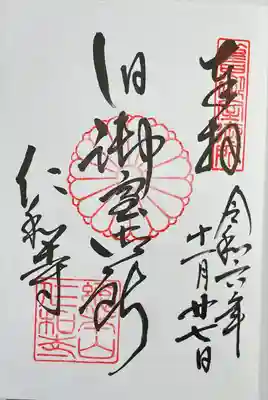 奉拝
令和六年
十一月廿七日
旧御室御所
仁和寺